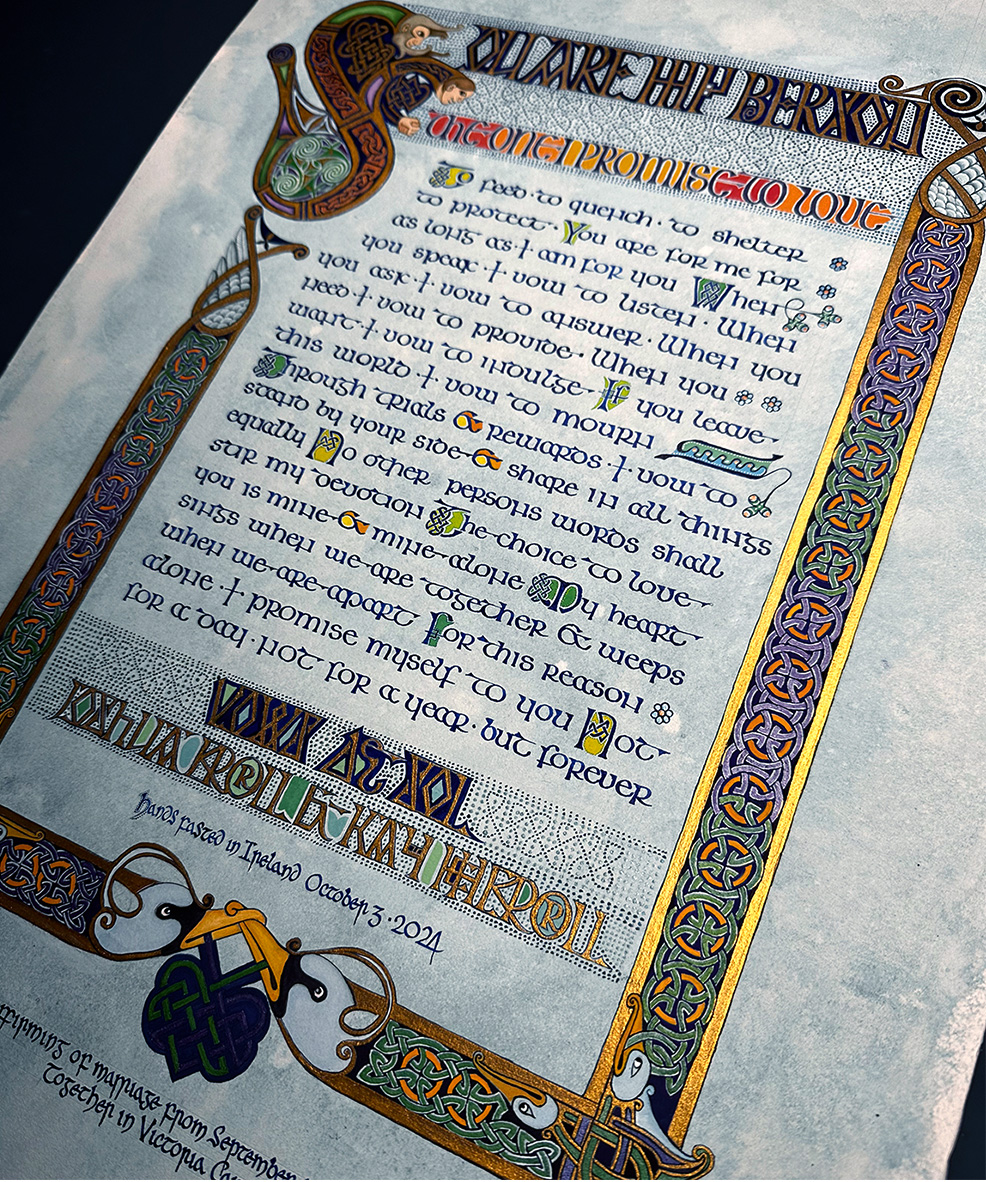 The one I promise to love
To feed · to quench · to shelter
to protect · You are for me for
as long as · I am for you When
you speak · I vow to listen · When
you ask · I vow to answer · When you
need · I vow to provide · When you
want · I vow to indulge · If you leave
this world · I vow to mourn
Through trials & rewards · I vow to
stand by your side & share in all things
equally No other persons words shall
stir my devotion The choice to love
you is mine & mine alone My heart
sings when we are together & weeps
when we are apart For this reason
alone · I promise myself to you Not
for a day · not for a year · but forever
JOSHUA KROLL
Hands fasted in Ireland October 3 · 2024
of marriage from September
Together in Victoria